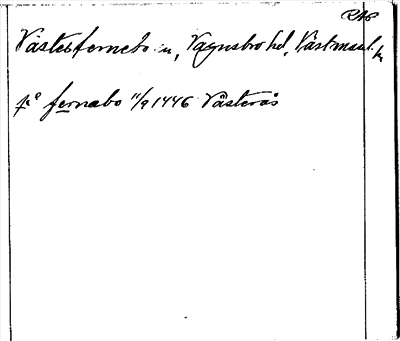 RAp
Västerfernebo sn, Vagnsbro hd, Västmanl. l.
på fernabo 11/9 1446 Västerås